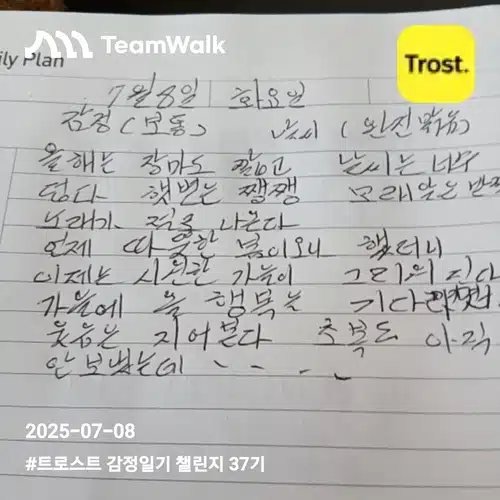 TeamWalk
Trost.
ily Plan
7월 8일 화요일
감정 (보통) 날씨 (완전 맑음)
올해는 장마도 짧고 날씨는 너무
덥다 햇볕는 쨍쨍 모래알은 반짝
노래가 절로 나온다
언제 따뜻한 봄이오나 했더니
이제는 시원한 가을이 그리워 진다
가을에 올 행복는 기다리면서
웃음은 지어본다 초복도 아직
안 보냈는데 ....
2025-07-08
#트로스트 감정일기 챌린지 37기